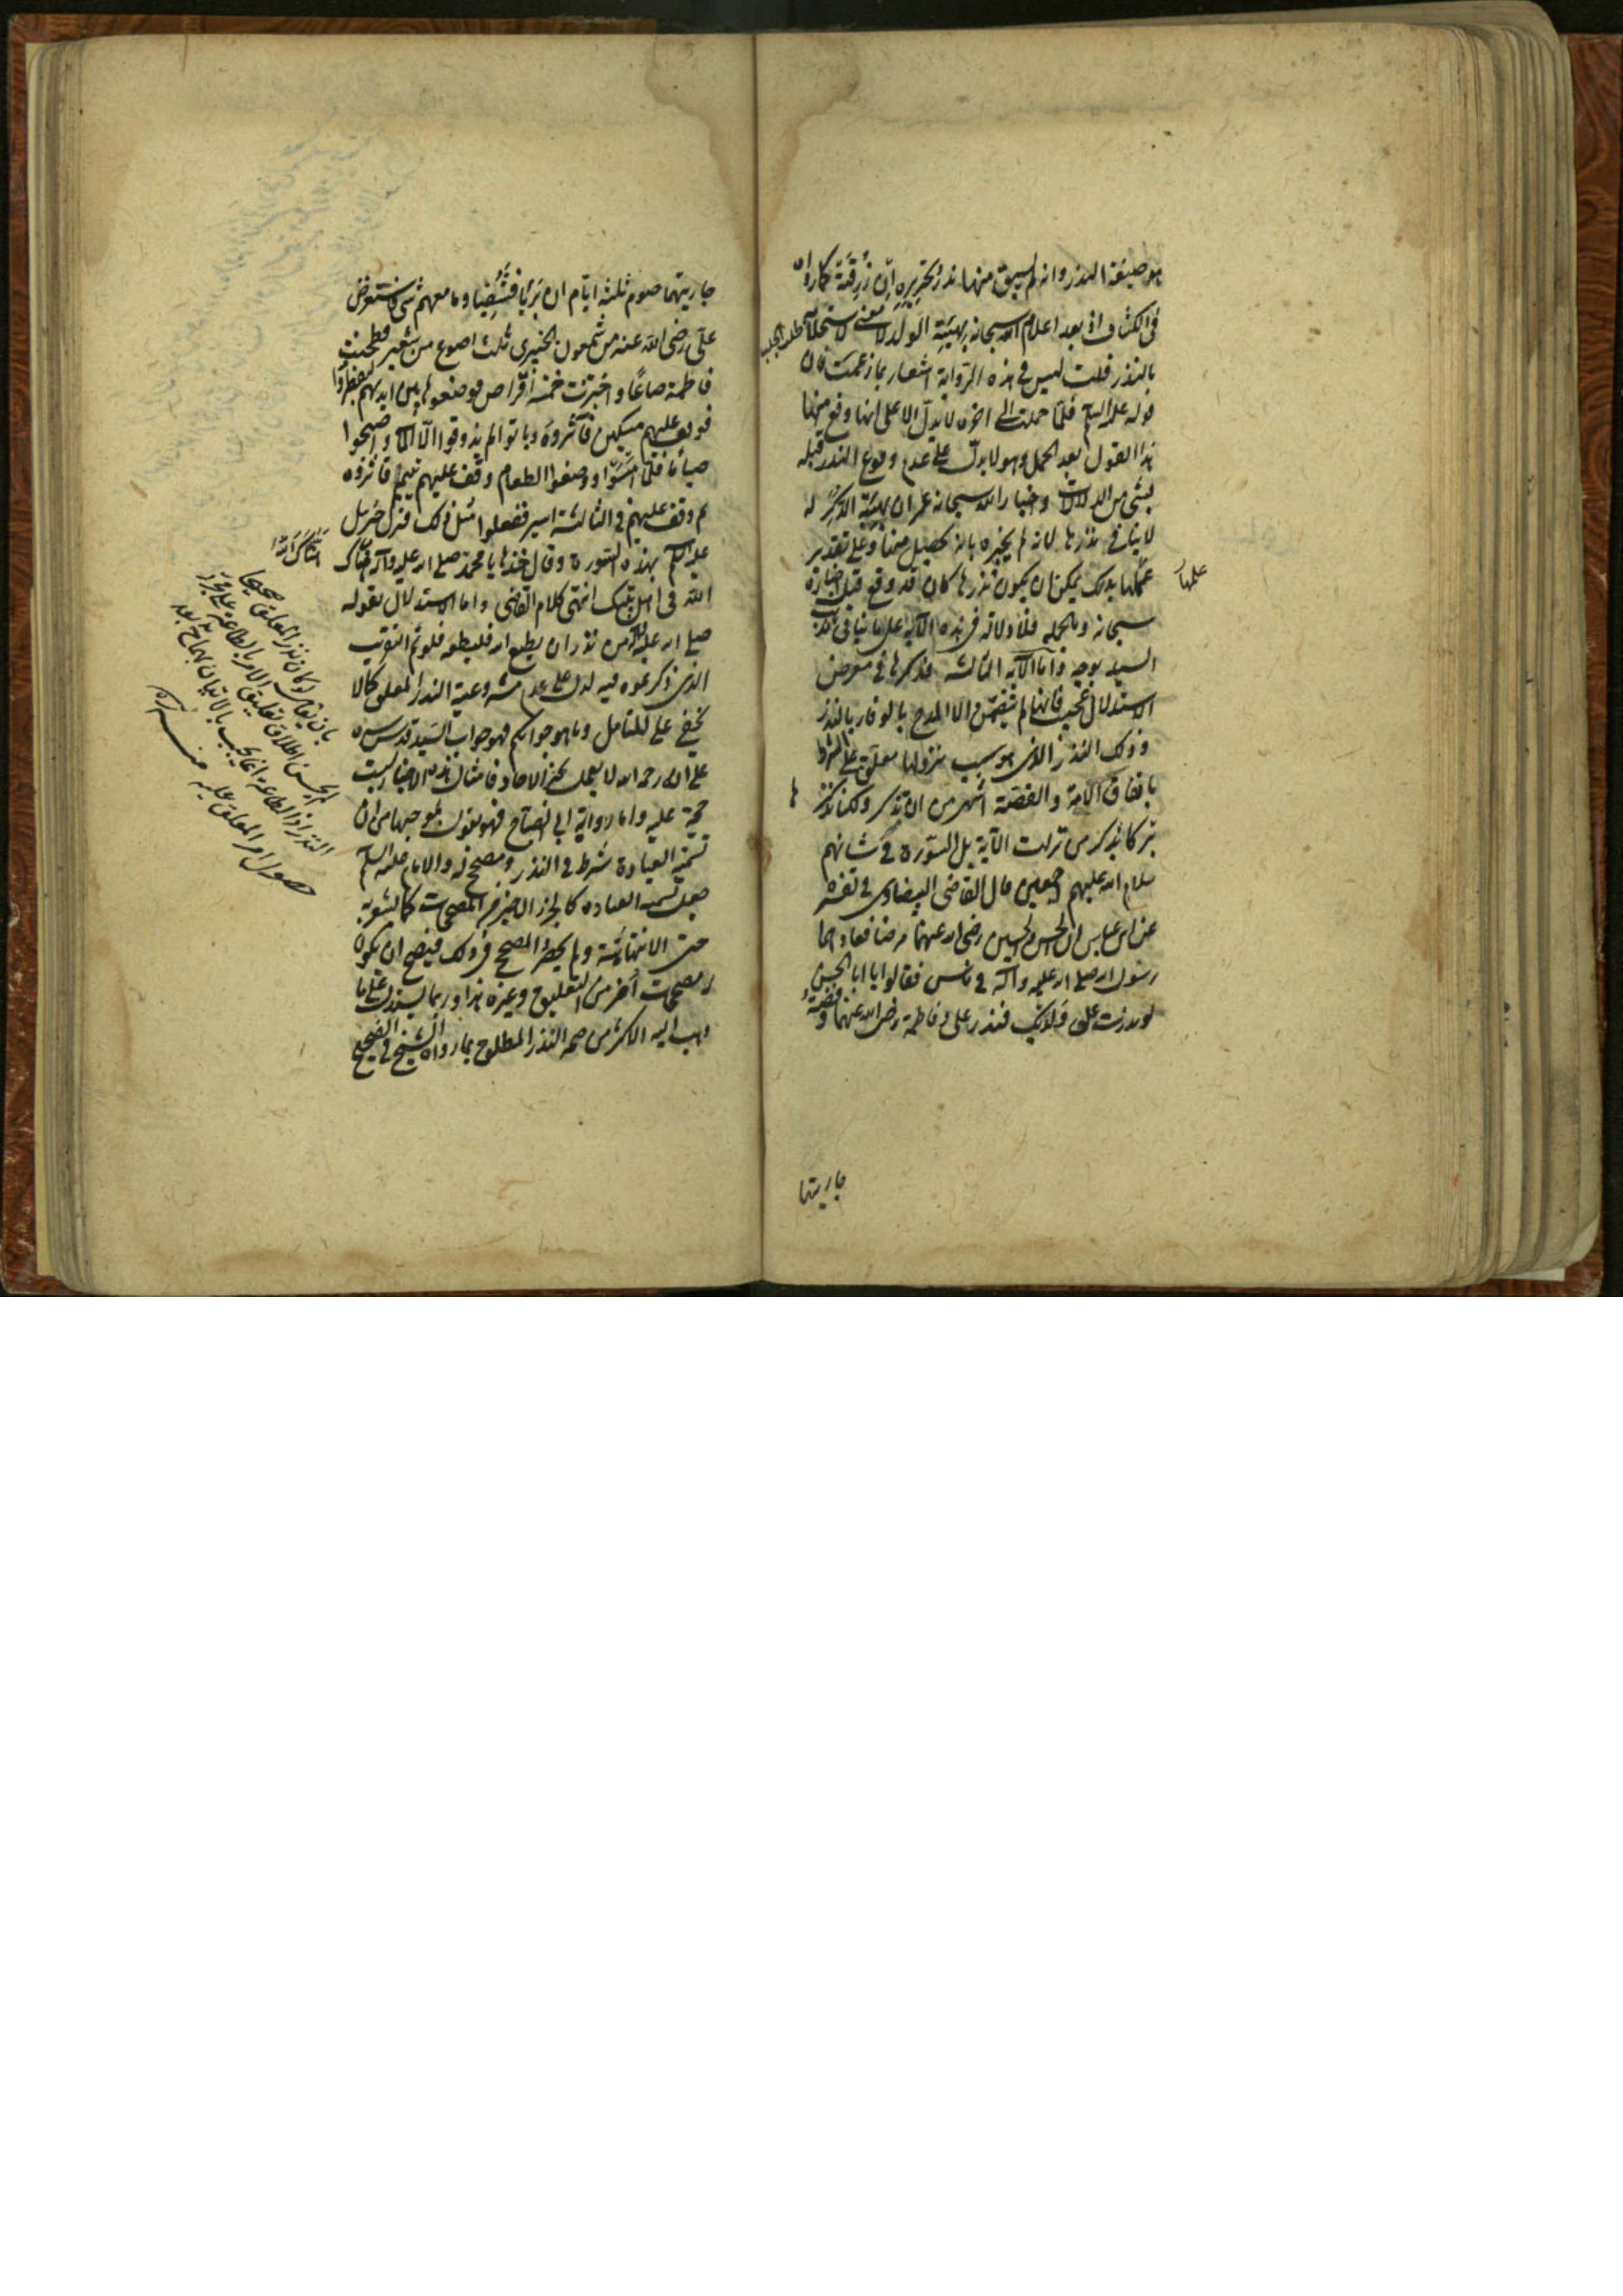 هو صيغة النذر وانه لم يسبق منها نذر تحريره ان رزقته كما رواه
في الكشاف اذ بعد اعلام الله سبحانه بهبة الولد لا معنى لاستجلابه
بالنذر قلت ليس في هذه الرواية اشعار بما زعمت فان
قوله عليه السلم فلما حملت الى اخره لا يدل الا على انها وقع منها
هذا القول بعد الحمل وهو لا يدل على عدم وقوع النذر قبله
بشئ من الدلالات واخبار الله سبحانه عمران بهبة الذكر له
لا ينافي نذرها لانه لم يخبره بانه يحصل منها وعلى تقدير
علمها بذلك يمكن ان يكون نذرها كان قد وقع قبل اخباره
سبحانه وبالجملة فلا دلالة في هذه الآية على ما ينافي كلام
السيد بوجه واما الآية الثالثة فذكرها في معرض
الاستدلال عجيب فانها لم تتضمن الا المدح بالوفاء بالنذر
وذلك النذر الذي هو سبب نزولها معلق على الشرط
باتفاق الامة والقصة اشهر من ان تذكر ولكنا نذكرها
تبركا بذكر من نزلت الآية بل السورة في شانهم
سلام الله عليهم اجمعين قال القاضي البيضاوي في تفسيره
عن ابن عباس ان الحسن والحسين رضي الله عنهما مرضا فعادهما
رسول الله صلى الله عليه وآله في ناس فقالوا يا ابا الحسن
لو نذرت على ولديك فنذر علي وفاطمة رضي الله عنهما وفضة
جاريتها
علمها
جاريتهما صوم ثلثة ايام ان برئا فشفيا وما معهم شئ فاستقرض
علي رضي الله عنه من شمعون الخيبري ثلث اصوع من شعير فطحنت
فاطمة صاعا واختبزت خمسة اقراص فوضعوها بين ايديهم ليفطروا
فوقف عليهم مسكين فآثروه وباتوا لم يذوقوا الا الماء واصبحوا
صياما فلما امسوا ووضعوا الطعام وقف عليهم يتيم فآثروه
ثم وقف عليهم في الثالثة اسير ففعلوا مثل ذلك فنزل جبرئيل
عليه السلم بهذه السورة وقال خذها يا محمد صلى الله عليه وآله هناك
الله في اهل بيتك انتهى كلام القاضي واما الاستدلال بقوله
صلى الله عليه وآله من نذر ان يطيع الله فليطعه فلو تم التقريب
الذي ذكرتموه فيه لدل على عدم مشروعية النذر المعلق كما لا
يخفى على المتامل وما هو جوابكم فهو جواب السيد قدس سره
على انه رحمه الله لا يعمل بخبر الاحاد فامثال هذه الاخبار ليست
حجة عليه واما رواية ابي الصباح فهو يقول بموجبها من ان
تسمية العبادة شرط في النذر ومصحح له والامام عليه السلم
جعل تسميه العباده كالجزء الاخير من المصححات كما يشعر به
حتى الانتهائية ولم يحصر المصحح في ذلك فيصح ان يكون
له مصححات اخر من التعليق وغيره هذا وربما يستدل على ما
ذهب اليه الاكثر من صحة النذر المطلق بما رواه الشيخ في الصحيح
بان يقال لو كان نذر المعلق صحيحا
لم يحسن اطلاق تعليق الامر بالطاعة على مجرد
النذر اذ الطاعة انما يجب بالاتيان بها ح بعد
حصول امر المعلق عليه منه